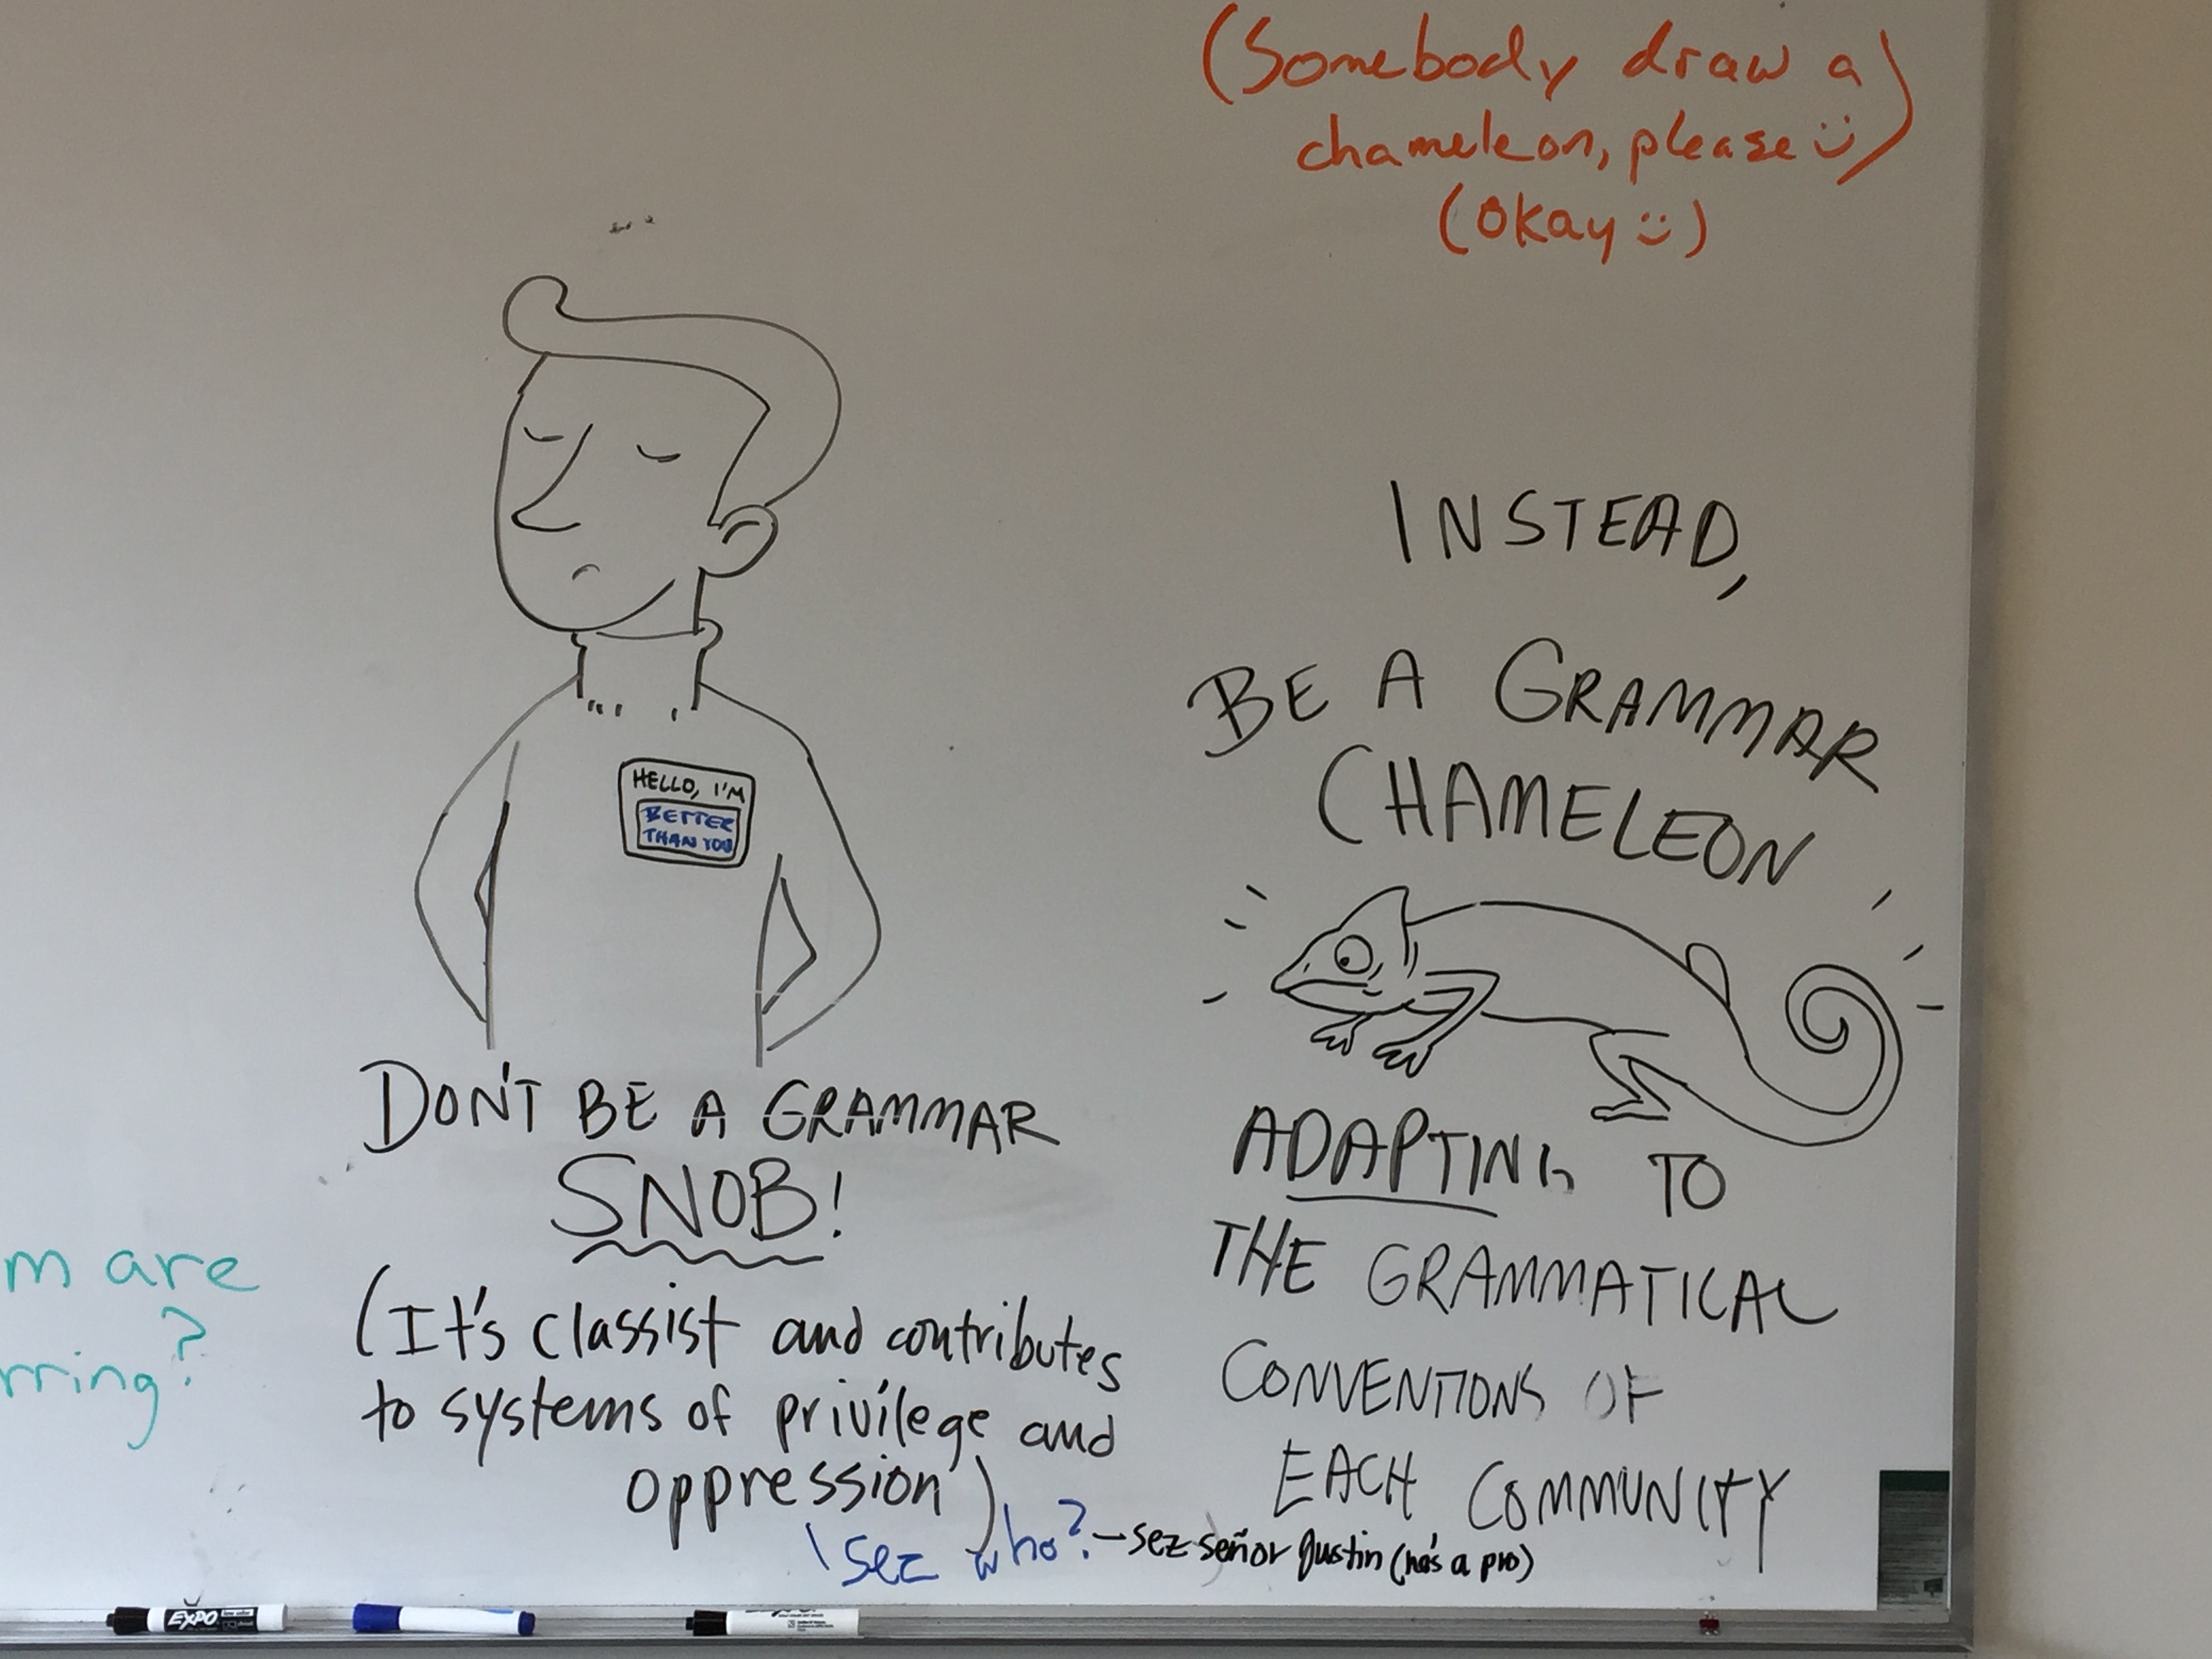 (Somebody draw a
chameleon, please :))
(Okay :))
HELLO, I'M
BETTER
THAN YOU
DON'T BE A GRAMMAR
SNOB!
(It's classist and contributes
to systems of privilege and
oppression)
sez who? – sez señor Justin (he's a pro)
INSTEAD,
BE A GRAMMAR
CHAMELEON
ADAPTING TO
THE GRAMMATICAL
CONVENTIONS OF
EACH COMMUNITY
m are
rring?
EXPO